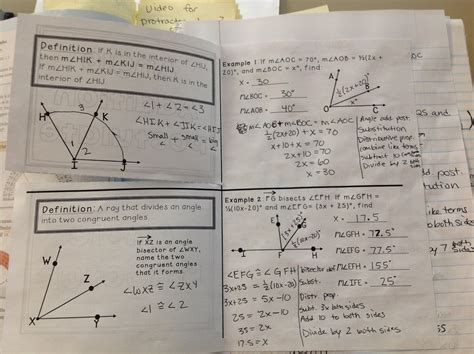 Video for
Definition: If K is in the interior of ∠HIJ,
then m∠HIK + m∠KIJ = m∠HIJ.
If m∠HIK + m∠KIJ = m∠HIJ, then K is in the
interior of ∠HIJ.
3
H
K
1
2
I
J
∠1 + ∠2 = ∠3
∠HIK + ∠JIK = ∠HIJ
Small + small = big
Example 1: If m∠AOC = 70°, m∠AOB = ½(2x +
20)°, and m∠BOC = x°, find
x = 30
m∠BOC = 30°
m∠AOB = 40°
A
B
½(2x+20)
x°
O
C
m∠AOB + m∠BOC = m∠AOC
½(2x+20) + x = 70
x+10+x = 70
2x+10 = 70
2x = 60
x = 30
Angle add post.
Substitution
Distributive prop.
combine like terms
Divide by 2
Definition: A ray that divides an angle
into two congruent angles
W
Z
X
Y
If XZ is an angle
bisector of ∠WXY,
name the two
congruent angles
that it forms.
∠WXZ ≅ ∠ZXY
∠1 ≅ ∠2
Example 2: FG bisects ∠EFH. If m∠GFH =
½(10x-20)° and m∠EFG = (3x + 25)°, find
E
G
I
F
H
x = 17.5
m∠GFH = 77.5°
m∠EFG = 77.5°
m∠EFH = 155°
m∠IFE = 25°
∠EFG ≅ ∠GFH
3x+25 = ½(10x-20)
3x+25 = 5x-10
25 = 2x-10
35 = 2x
17.5 = x
Bisector def
Subst.
Distr. prop.
Subt. 3x both sides
Add 10 to both sides
Divide by 2 both sides